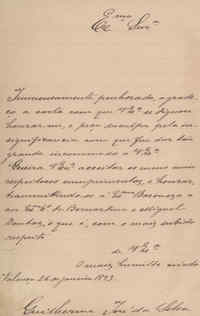 Exmo Snr.
Immensamente penhorado, agrade-
ço a carta com que V Exa se dignou
honrar-me, e peço desculpa pela in-
significancia com que fui dar tão
grande incommodo a V Exa.
Queira V Exa acceitar os meus mais
respeitosos cumprimentos, e honrar,
transmittindo-os á Exma Baroneza e
aos Exmos Srs. Bernardino e Miguel
Dantas, o que é, com o mais subido
respeito
de V Exa
O mais humilde criado
Valença 26 de janeiro 1893.
Guilherme José da Silva